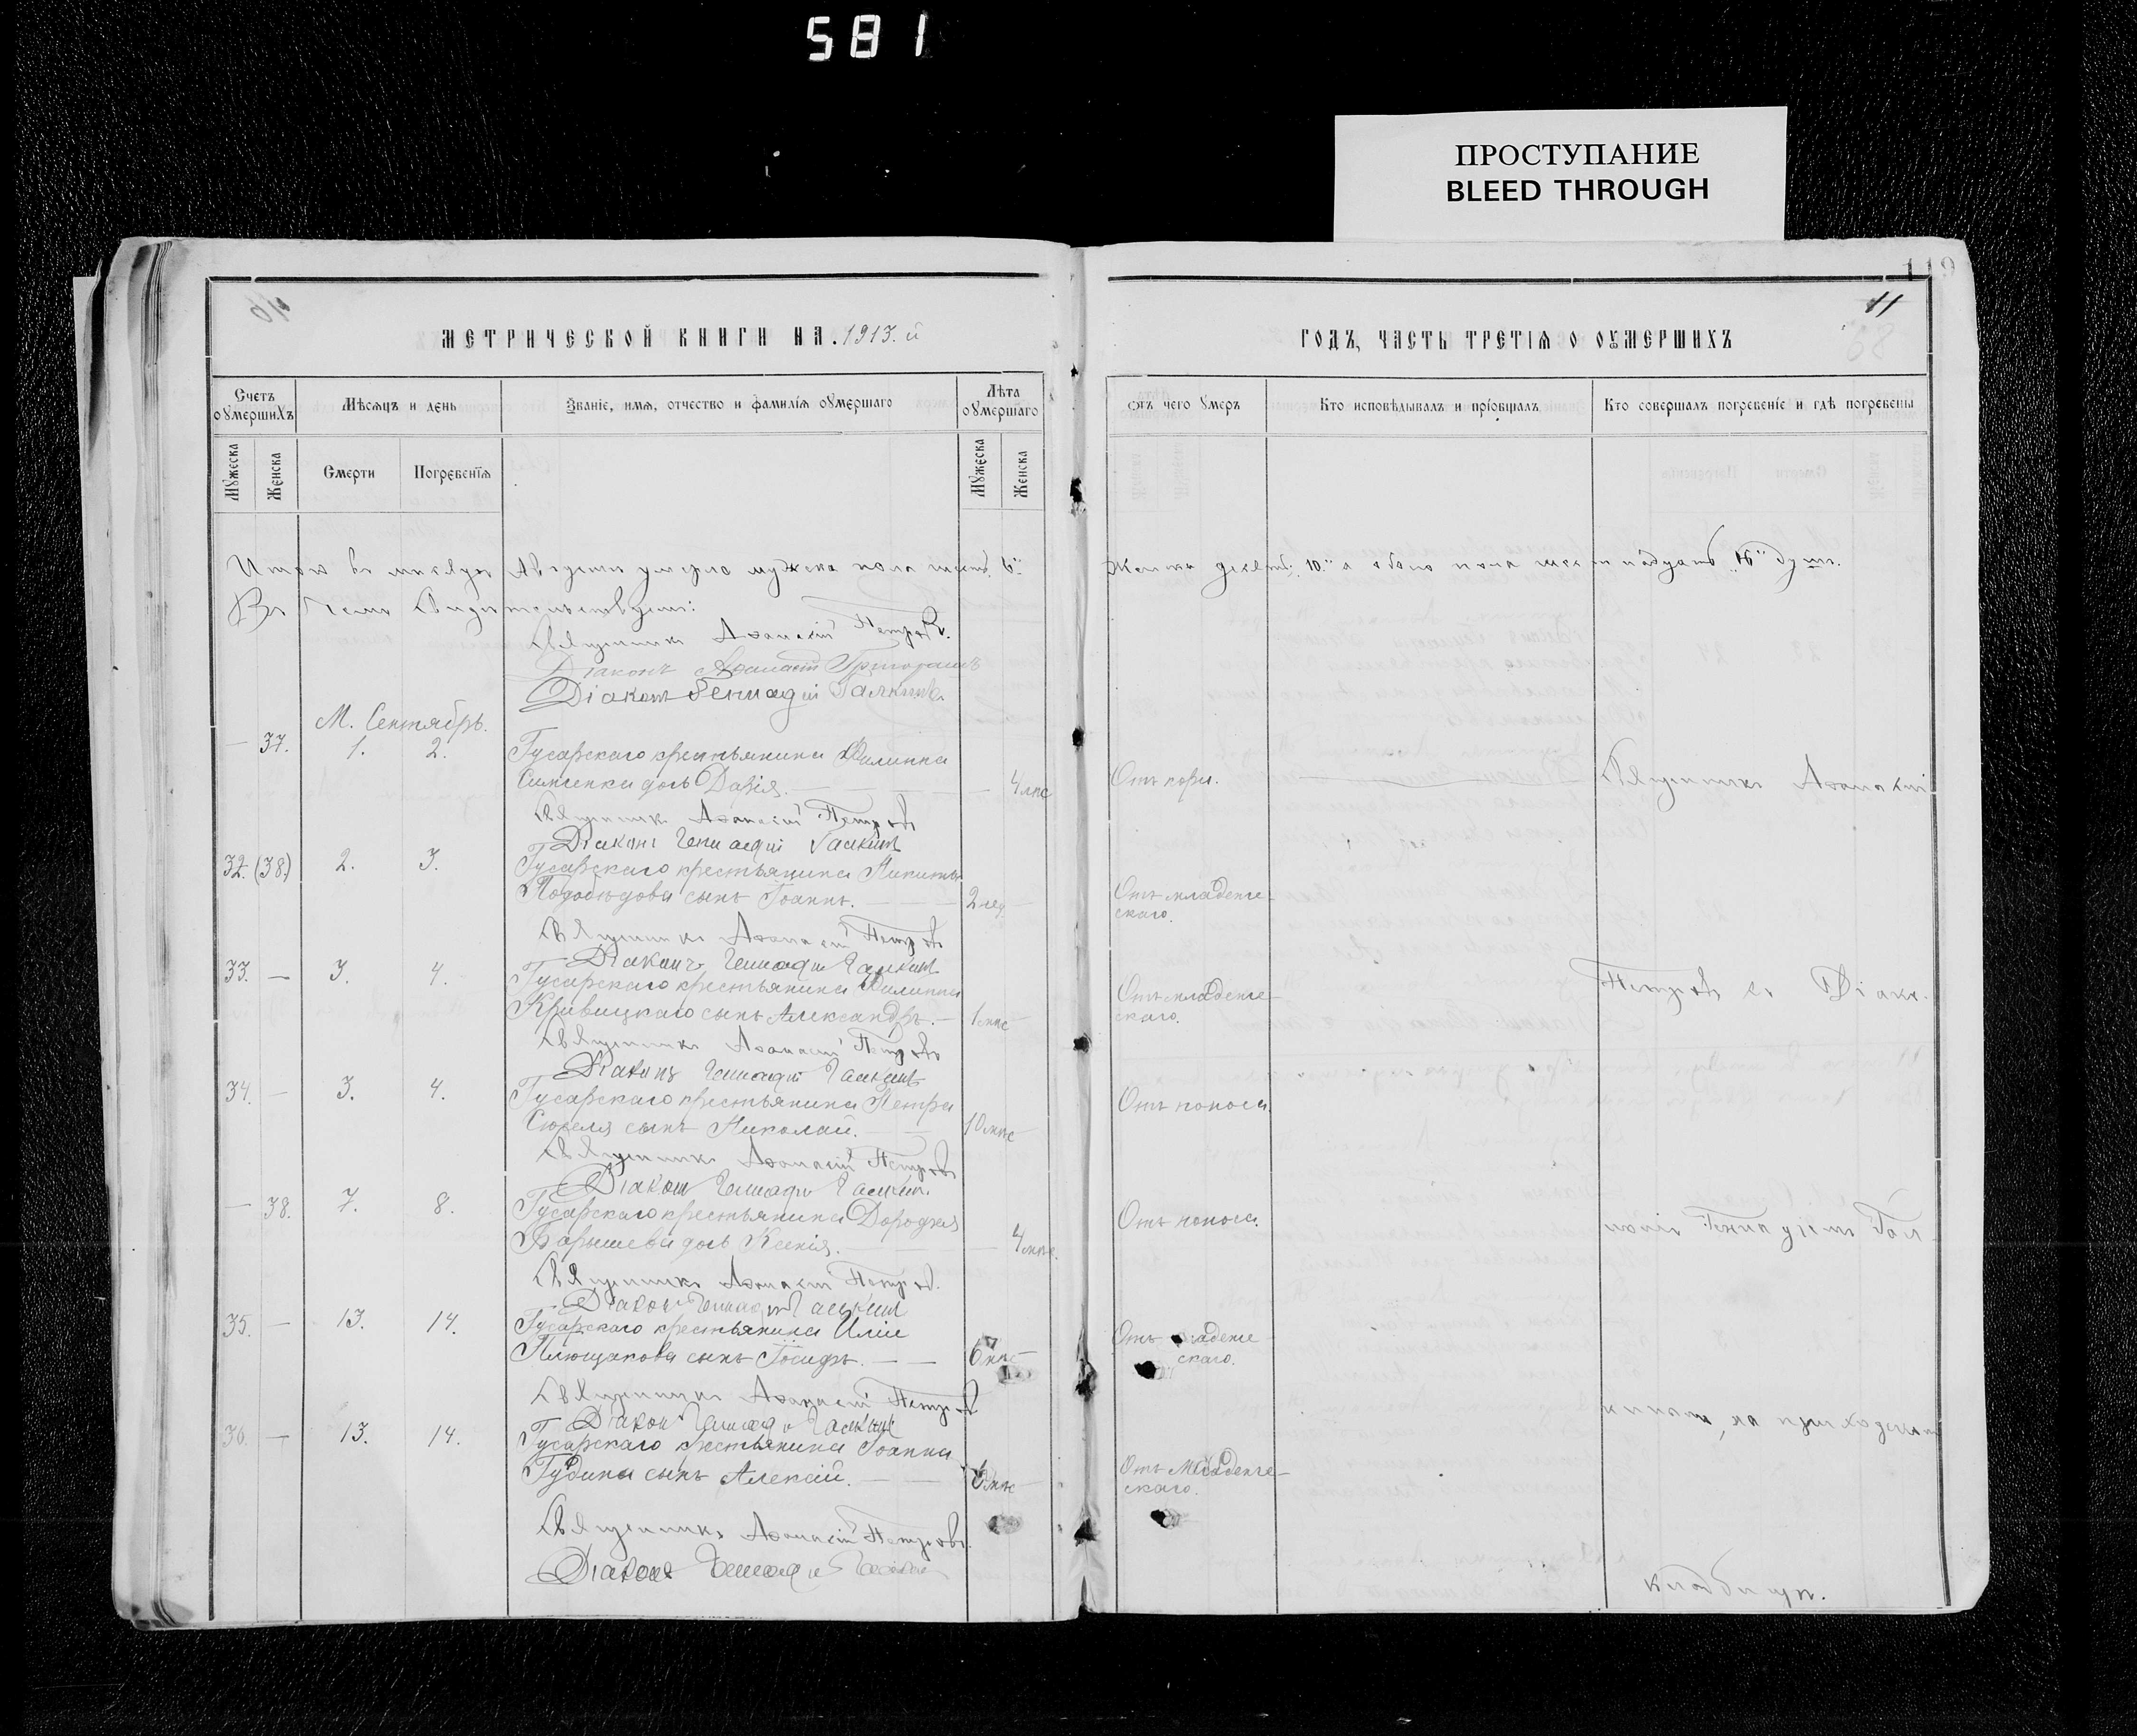 581
ПРОСТУПАНИЕ
BLEED THROUGH
119
11
68
МЕТРИЧЕСКОЙ КНИГИ НА 1913.й
ГОДЪ, ЧАСТЬ ТРЕТІѦ О ОУМЕРШИХЪ
Счетъ оумершихъ
Мѣсѧцъ и день
Званіе, имѧ, отчество и фамилїѧ оумершаго
Лѣта оумершаго
Ѿъ чего умеръ
Кто исповѣдывалъ и прїобщалъ
Кто совершалъ погребенїе и гдѣ погребены
Мужеска
Женска
Смерти
Погребенїѧ
Мужеска
Женска
Итого въ мѣсяцѣ Августѣ умерло мужска пола шесть 6"
женска десять 10" а обоего пола шестнадцать 16" душъ.
Въ чемъ свидѣтельствуемъ:
Священникъ Аѳанасій Петровъ.
Діаконъ Аѳанасій
Діаконъ Геннадій Галкинъ.
М. Сентябрь.
— 37. 1. 2. Гусарскаго крестьянина Филиппа
дочь Дарія. — 4 мѣс
Отъ кори.
Священникъ Аѳанасій
Священникъ Аѳанасій Петровъ
Діаконъ Геннадій Галкинъ
32. (38.) 2. 3. Гусарскаго крестьянина Никиты
Подобѣдова сынъ Іоаннъ. — 2 нед.
Отъ младенче-
скаго.
Священникъ Аѳанасій Петровъ
Діаконъ Геннадій Галкинъ
33. — 3. 4. Гусарскаго крестьянина Филиппа
Кривицкаго сынъ Александръ. — 1 мѣс
Отъ младенче-
скаго.
Петровъ съ Діако-
Священникъ Аѳанасій Петровъ
Діаконъ Геннадій Галкинъ
34. — 3. 4. Гусарскаго крестьянина Петра
сынъ Николай. — 10 мѣс
Отъ поноса.
Священникъ Аѳанасій Петровъ
Діаконъ Геннадій Галкинъ.
— 38. 7. 8. Гусарскаго крестьянина Дорофея
Барышева дочь Ксенія. — 4 мѣс.
Отъ поноса.
номъ Геннадіемъ Гал-
Священникъ Аѳанасій Петровъ.
Діаконъ Геннадій Галкинъ
35. — 13. 14. Гусарскаго крестьянина Иліи
Плющакова сынъ Іосифъ. — — мѣс
Отъ младенче-
скаго.
Священникъ Аѳанасій Петровъ
Діаконъ Геннадій Галкинъ
кинымъ, на приходскомъ
36. — 13. 14. Гусарскаго крестьянина Іоанна
Гудина сынъ Алексій. — — мѣс
Отъ младенче-
скаго.
Священникъ Аѳанасій Петровъ.
Діаконъ Геннадій Галкинъ
кладбищѣ.